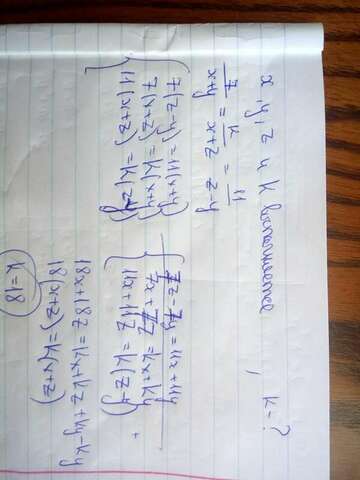 x, y, z и k , k=?
7/(x+y) = k/(x+z) = 11/(z-y)
7(z-y)=11(x+y)
7(x+z)=k(x+y)
11(x+z)=k(z-y)
7z-7y=11x+11y
7x+7z=kx+ky
11x+11z=k(z-y) +
18x+18z=kx+kz+ky-ky
18(x+z)=k(x+z)
k=18